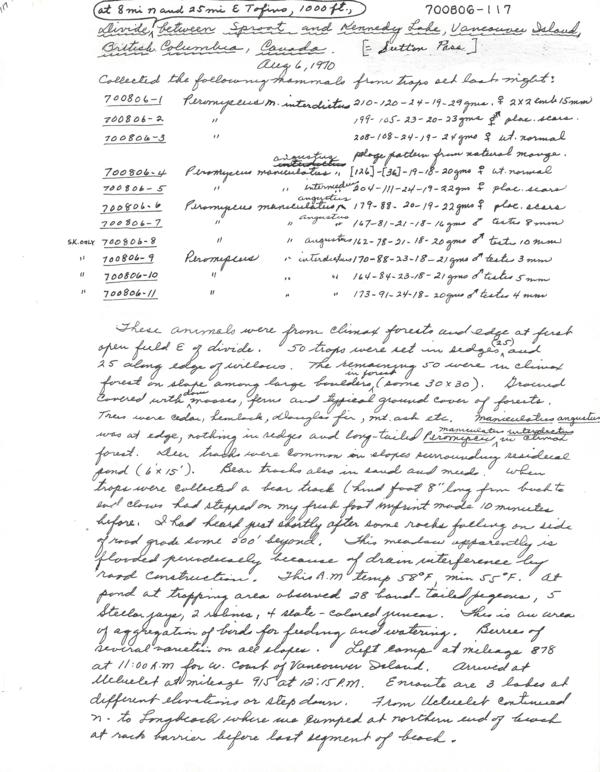 at 8 mi n and 25 mi E Tofino, 1000 ft., 700806-117
Divide, between Sproat and Kennedy Lake, Vancouver Island,
British Columbia, Canada. [= Sutton Pass]
Aug 6, 1970
Collected the following mammals from traps set last night:
700806-1 Peromyscus m. interdictus 210-120-24-19-29gms. ♀ 2X2 emb 15mm
700806-2 " 199-105-23-20-23gms ♀ plac. scars.
700806-3 " 208-108-24-19-24gms ♀ ut. normal
pelage pattern from natural mange.
700806-4 Peromyscus maniculatus angustus interdictus " [126]-[36]-19-18-20gms ♀ ut. normal
700806-5 " " intermedius 204-111-24-19-22gms ♀ plac scars
700806-6 Peromyscus maniculatus angustus 179-88-20-19-22gms ♀ plac. scars
700806-7 " " angustus 167-81-21-18-16gms ♂ testes 8mm
SK. ONLY 700806-8 " " angustus 162-78-21-18-20gms ♂ test. 10mm
" 700806-9 Peromyscus " interdictus 170-88-23-18-21gms ♂ testes 3mm
" 700806-10 " " " 164-84-23-18-21gms ♂ testes 5mm
" 700806-11 " " " 173-91-24-18-20gms ♂ testes 4mm
These animals were from climax forests and edge at first
open field E of divide. 50 traps were set in sedges, (25) and
25 along edge of willows. The remaining 50 were in climax
forest on slope in forest among large boulders, (some 30x30). Ground
covered with down mosses, ferns and typical ground cover of forests.
Trees were cedar, hemlock, douglas fir, mt. ash etc. maniculatus angustus
was at edge, nothing in sedges and long-tailed Peromyscus maniculatus interdictus in climax
forest. Deer tracks were common on slopes surrounding residual
pond (6'x15'). Bear tracks also in sand and muds. When
traps were collected a bear track (hind foot 8" long from back to
end claws had stepped on my fresh foot myprint made 10 minutes
before. I had heard just shortly after some rocks falling on side
of road grade some 200' beyond. This meadow apparently is
flooded periodically because of drain interference by
road construction. This A.M temp 58°F, min 55°F. At
pond at trapping area observed 28 band-tailed pigeons, 5
Stellar jays, 2 robins, 4 slate-colored juncos. This is an area
of aggregation of birds for feeding and watering. Berries of
several varieties on all slopes. Left camp at mileage 878
at 11:00 A.M for W. Coast of Vancouver Island. Arrived at
Ucluelet at mileage 915 at 12:15 P.M. Enroute are 3 lakes at
different elevations or step down. From Ucluelet continued
n. to Longbeach where we camped at northern end of beach
at rock barrier before last segment of beach.